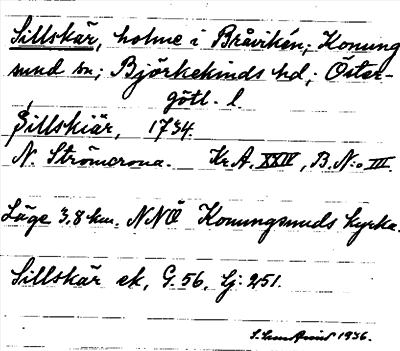 Sillskär, holme i Bråviken; Konung
sund sn; Björkekinds hd; Öster-
götl. l.
Sillskiär, 1734.
N. Strömcrona. Kr.A. XXIV, B. N:o III.
Läge 3,8 km. NNÖ Konungsunds kyrka.
Sillskär ek, G. 56, Gj: 251.
1936.